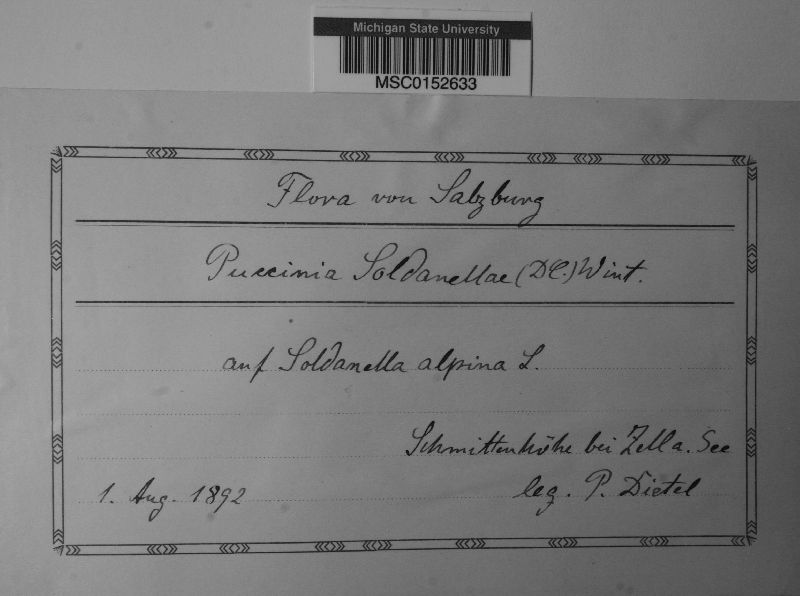 Michigan State University
MSC0152633
Flora von Salzburg
Puccinia Soldanellae (DC.) Wint.
auf Soldanella alpina L.
Schmittenhöhe bei Zell a. See
1. Aug. 1892 leg. P. Dietel